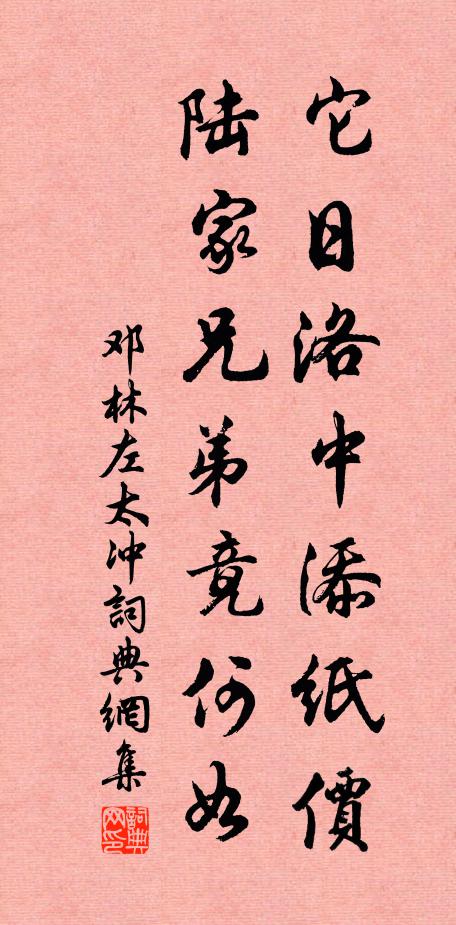 它日洛中添紙價
陆家兄弟竟何如
邓林左太冲詞典網集
詞典网印